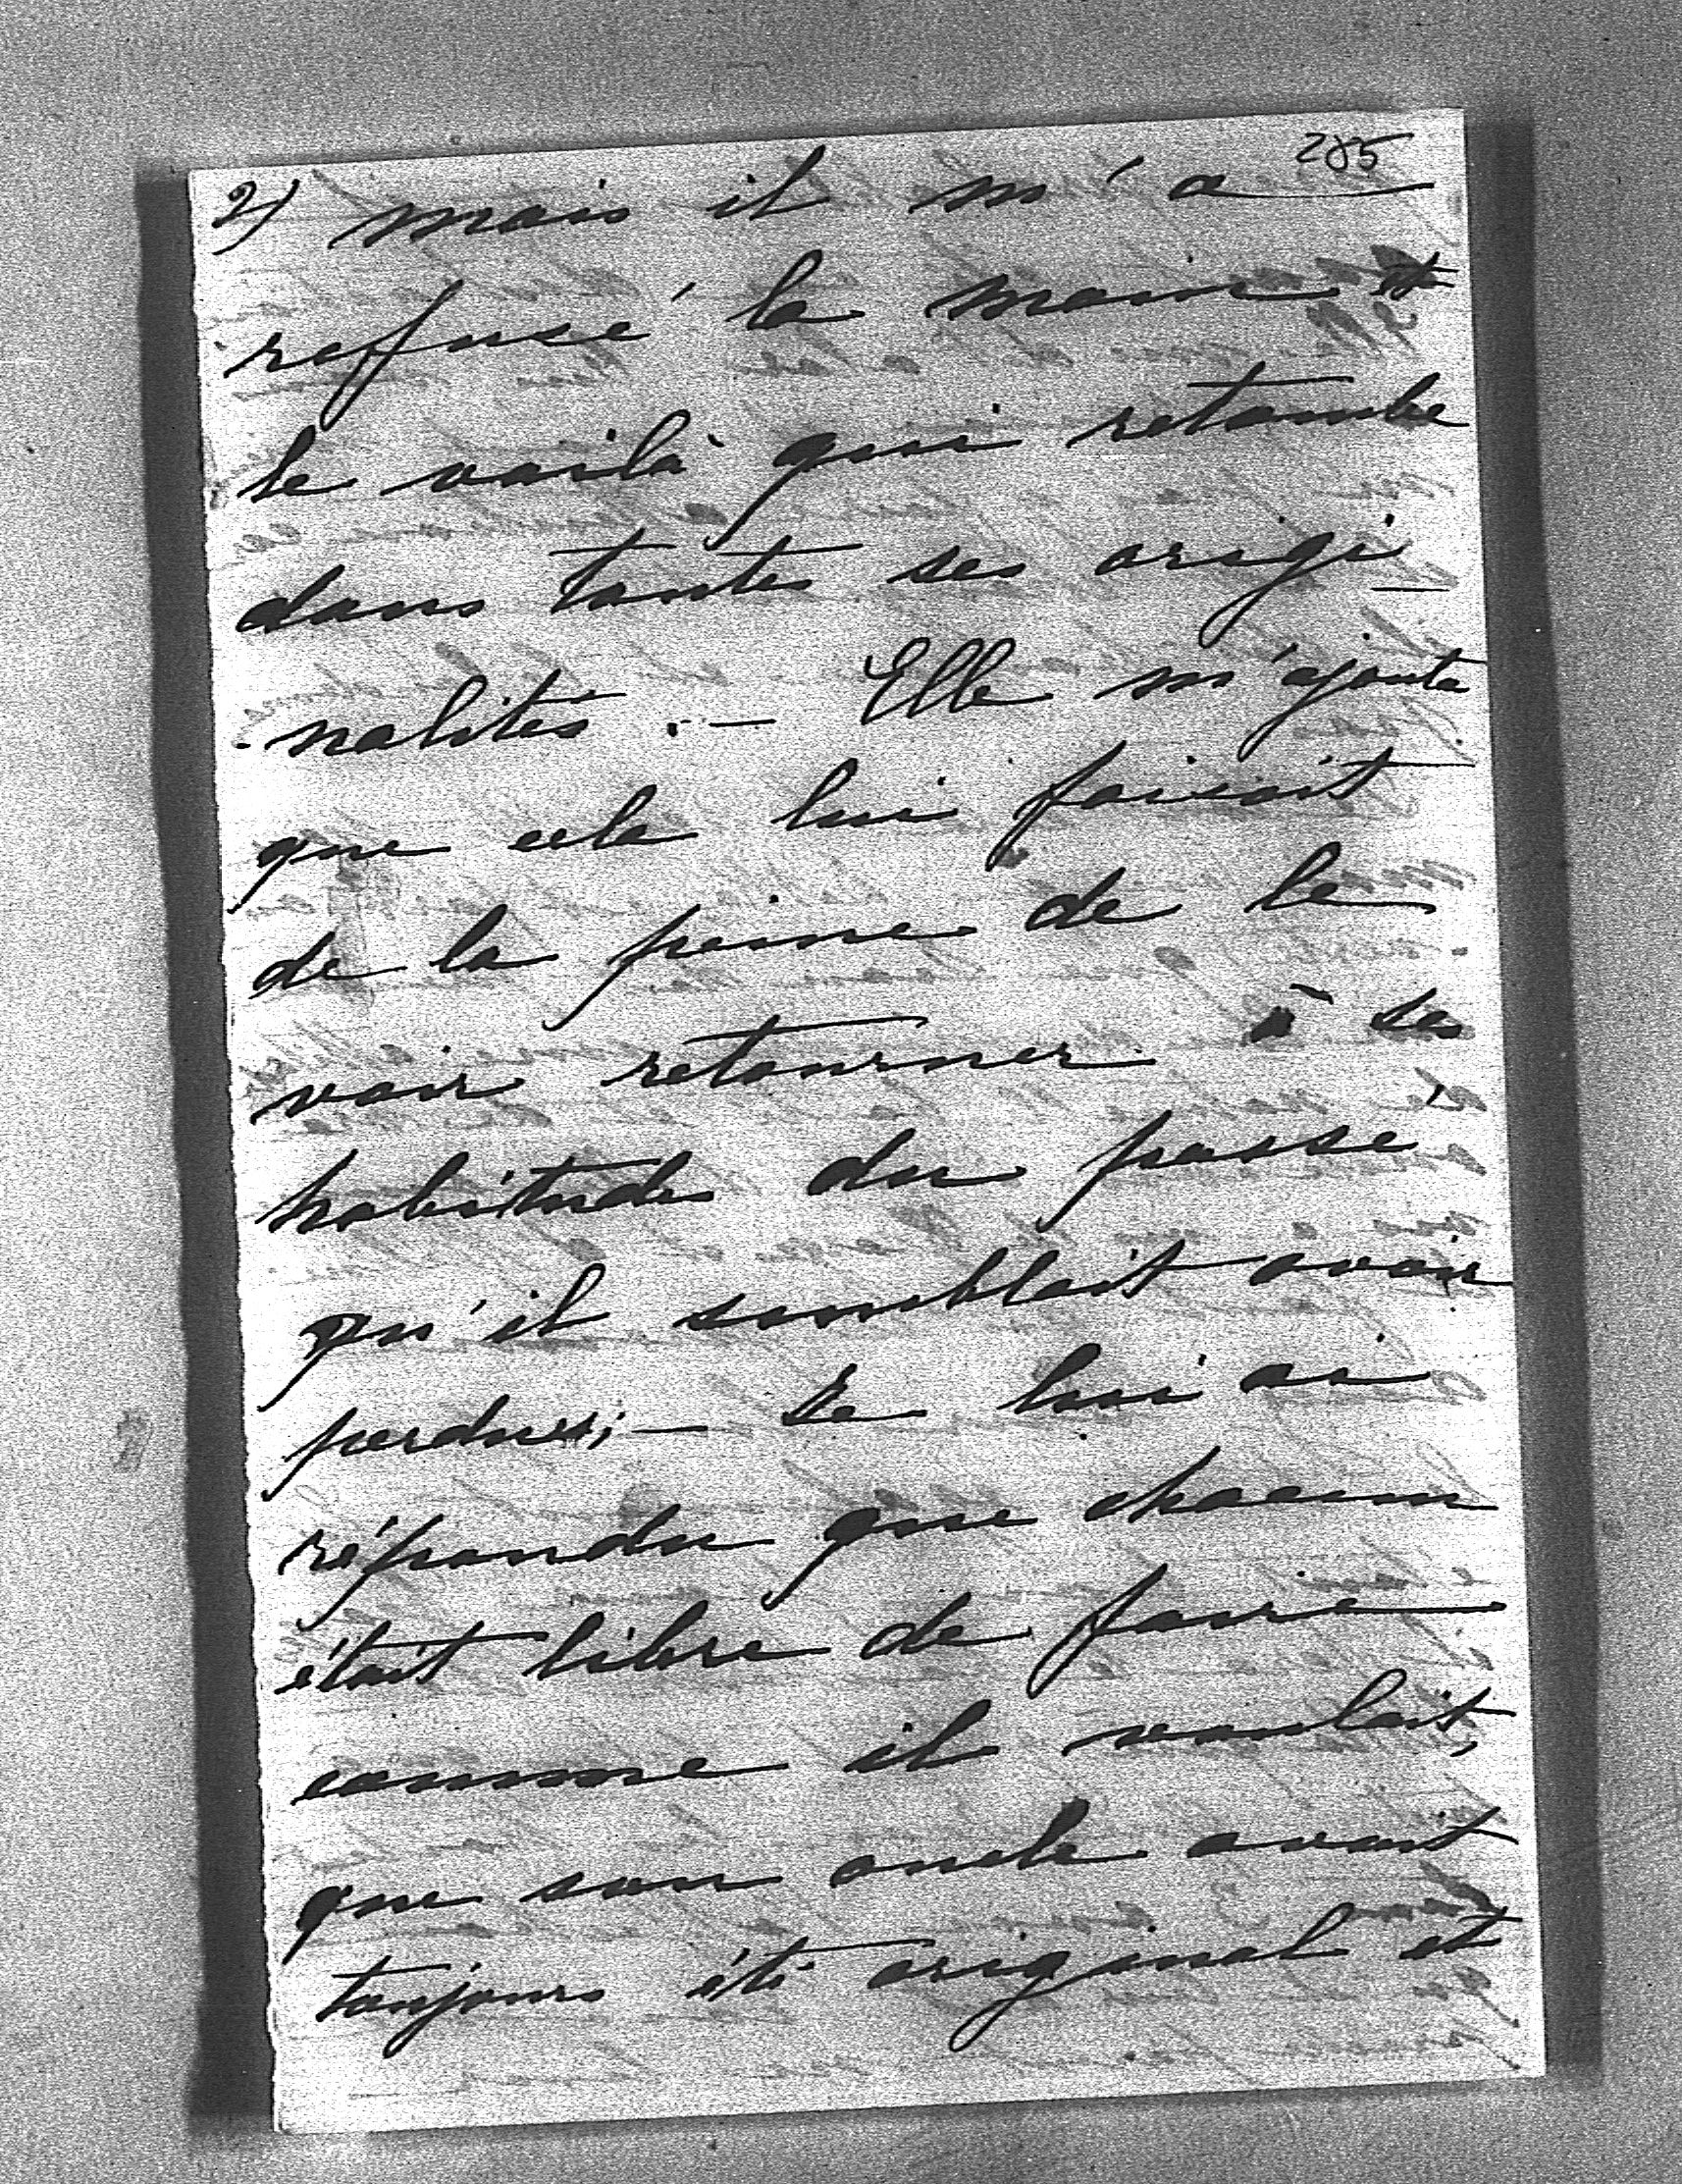 285
2) mais il m'a
refusé la main et
le voilà qui retombe
dans toutes ses origi
nalités. — Elle m'ajouta
que cela lui faisait
de la peine de le
voir retourner à ses
habitudes du passé
qu'il semblait avoir
perdues; — Je lui ai
répondu que chacun
était libre de faire
comme il voulait,
que son oncle avait
toujours été original et